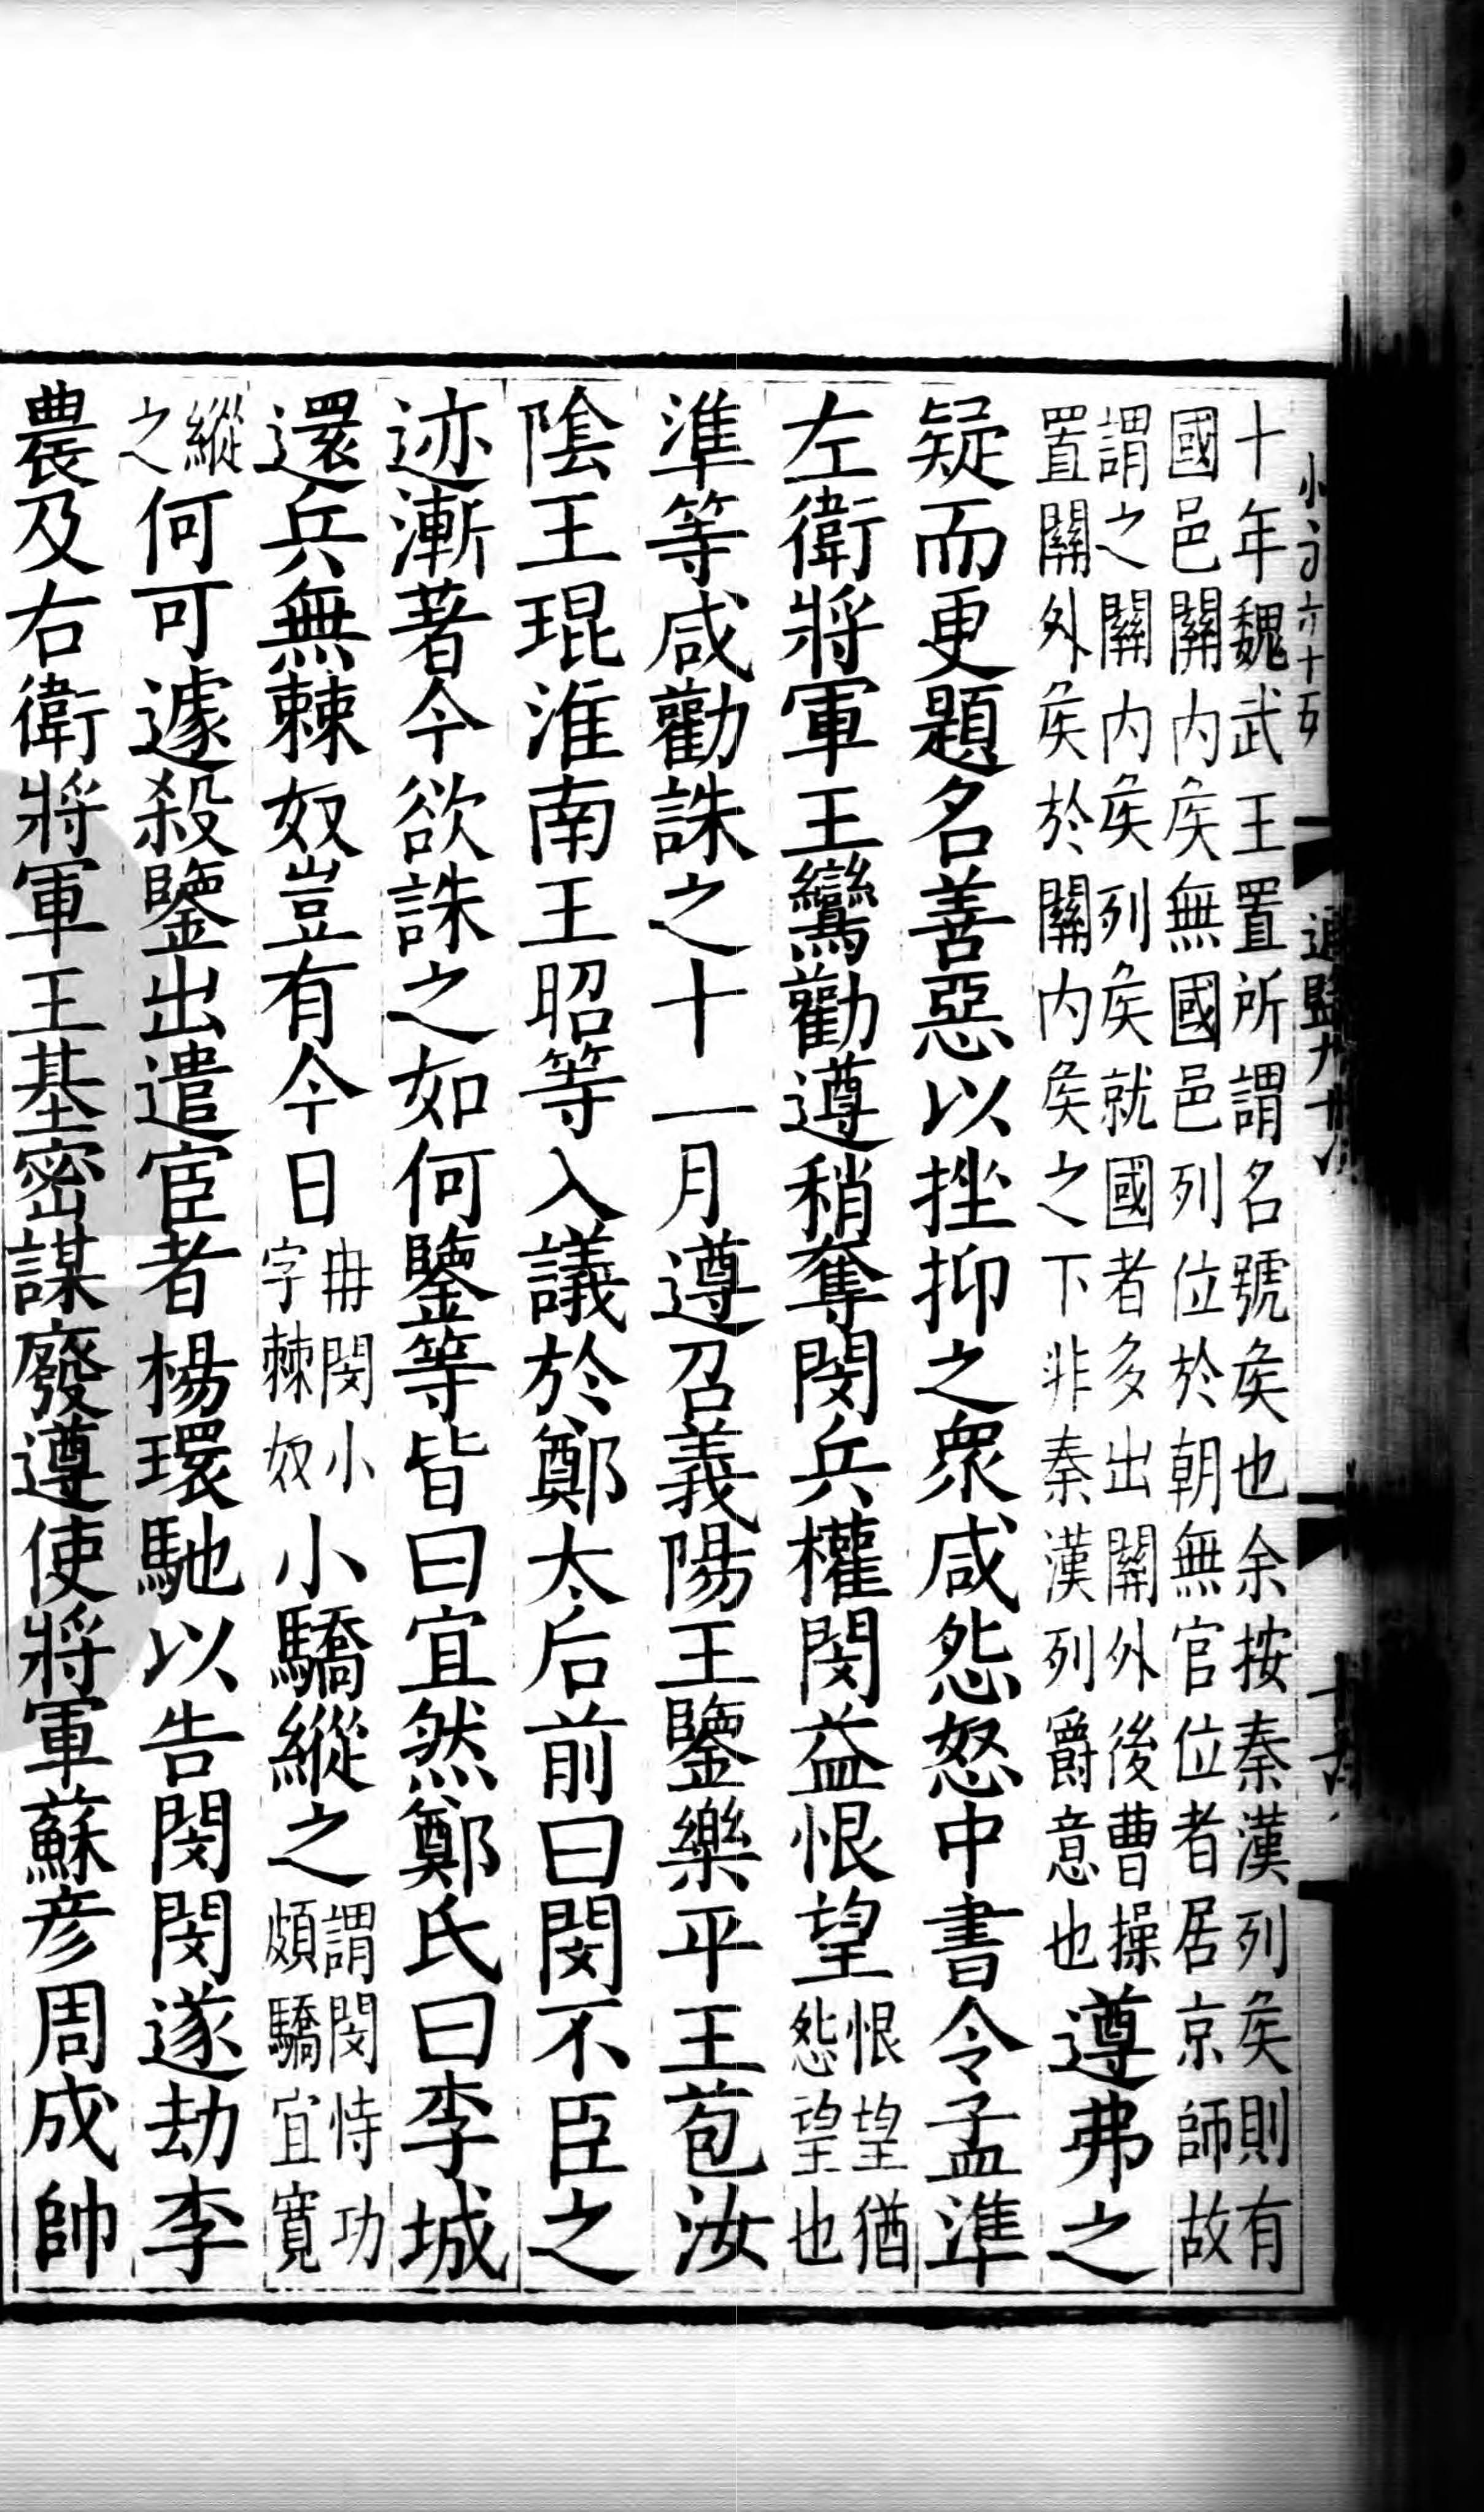 十年魏武王置所謂名號矦也余按秦漢列矦則有
國邑關内矦無國邑列位於朝無官位者居京師故
謂之關内矦列矦就國者多出關外後曹操
置關外矦於關内矦之下非秦漢列爵意也
遵弗之
疑而更題名善惡以挫抑之衆咸怨怒中書令孟準
左衛將軍王鸞勸遵稍奪閔兵權閔益恨望
恨望猶
怨望也
準等咸勸誅之十一月遵召義陽王鑒樂平王苞汝
陰王琨淮南王昭等入議於鄭太后前曰閔不臣之
迹漸著今欲誅之如何鑒等皆曰宜然鄭氏曰李城
還兵無棘奴豈有今日
冉閔小
字棘奴
小驕縱之
謂閔恃功
頗驕宜寛
縱
之
何可遽殺鑒出遣宦者楊環馳以告閔閔遂劫李
農及右衛將軍王基密謀廢遵使將軍蘇彦周成帥